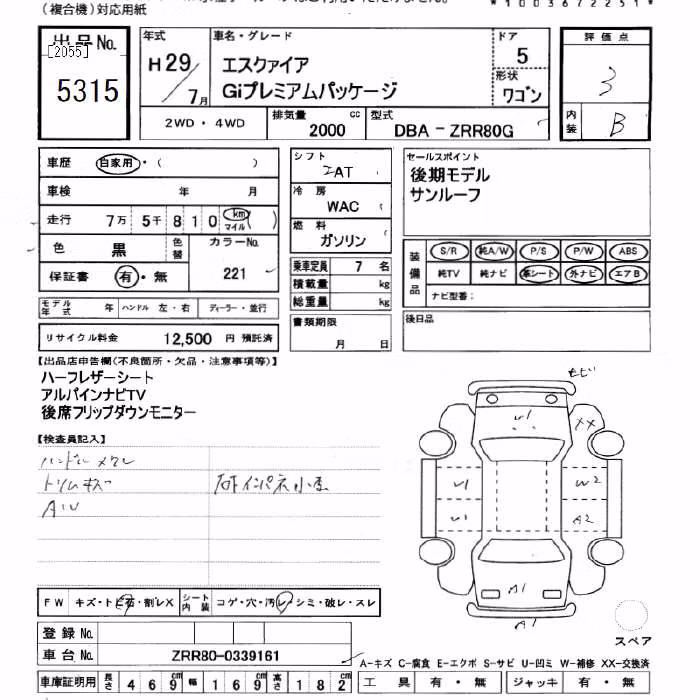 (複合機)対応用紙
*10036722 51*
出品No.
[2055]
5315
年式
H29
7月
車名・グレード
エスクァイア
Giプレミアムパッケージ
ドア
5
形状
ワゴン
評価点
3
内装
B
2WD・4WD
排気量 2000 cc
型式 DBA-ZRR80G
車歴 自家用・( )
車検 年 月
走行 7万 5千 8 1 0 km マイル ( )
色 黒 色替 カラーNo.
保証書 有・無 221
シフト
AT
冷房
WAC
燃料
ガソリン
乗車定員 7 名
積載量 kg
総重量 kg
セールスポイント
後期モデル
サンルーフ
装備品
S/R 純A/W P/S P/W ABS
純TV 純ナビ 革シート 外ナビ エアB
ナビ型番:
モデル年式 年 ハンドル 左・右 ディーラー・並行
リサイクル料金 12,500 円 預託済
書類期限
月 日
後日品
【出品店申告欄(不良箇所・欠品・注意事項等)】
ハーフレザーシート
アルパインナビTV
後席フリップダウンモニター
【検査員記入】
トリムキズ
AW
U1
XX
U1
W2
U1
A2
A1
A1
スペア
FW キズ・トビ石・割レX シート内装 コゲ・穴・汚レ・シミ・破レ・スレ
登録No.
車台No. ZRR80-0339161
A-キズ C-腐食 E-エクボ S-サビ U-凹ミ W-補修 XX-交換済
車庫証明用 長さ 4 6 9 cm 幅 1 6 9 cm 高さ 1 8 2 cm
工具 有・無 ジャッキ 有・無